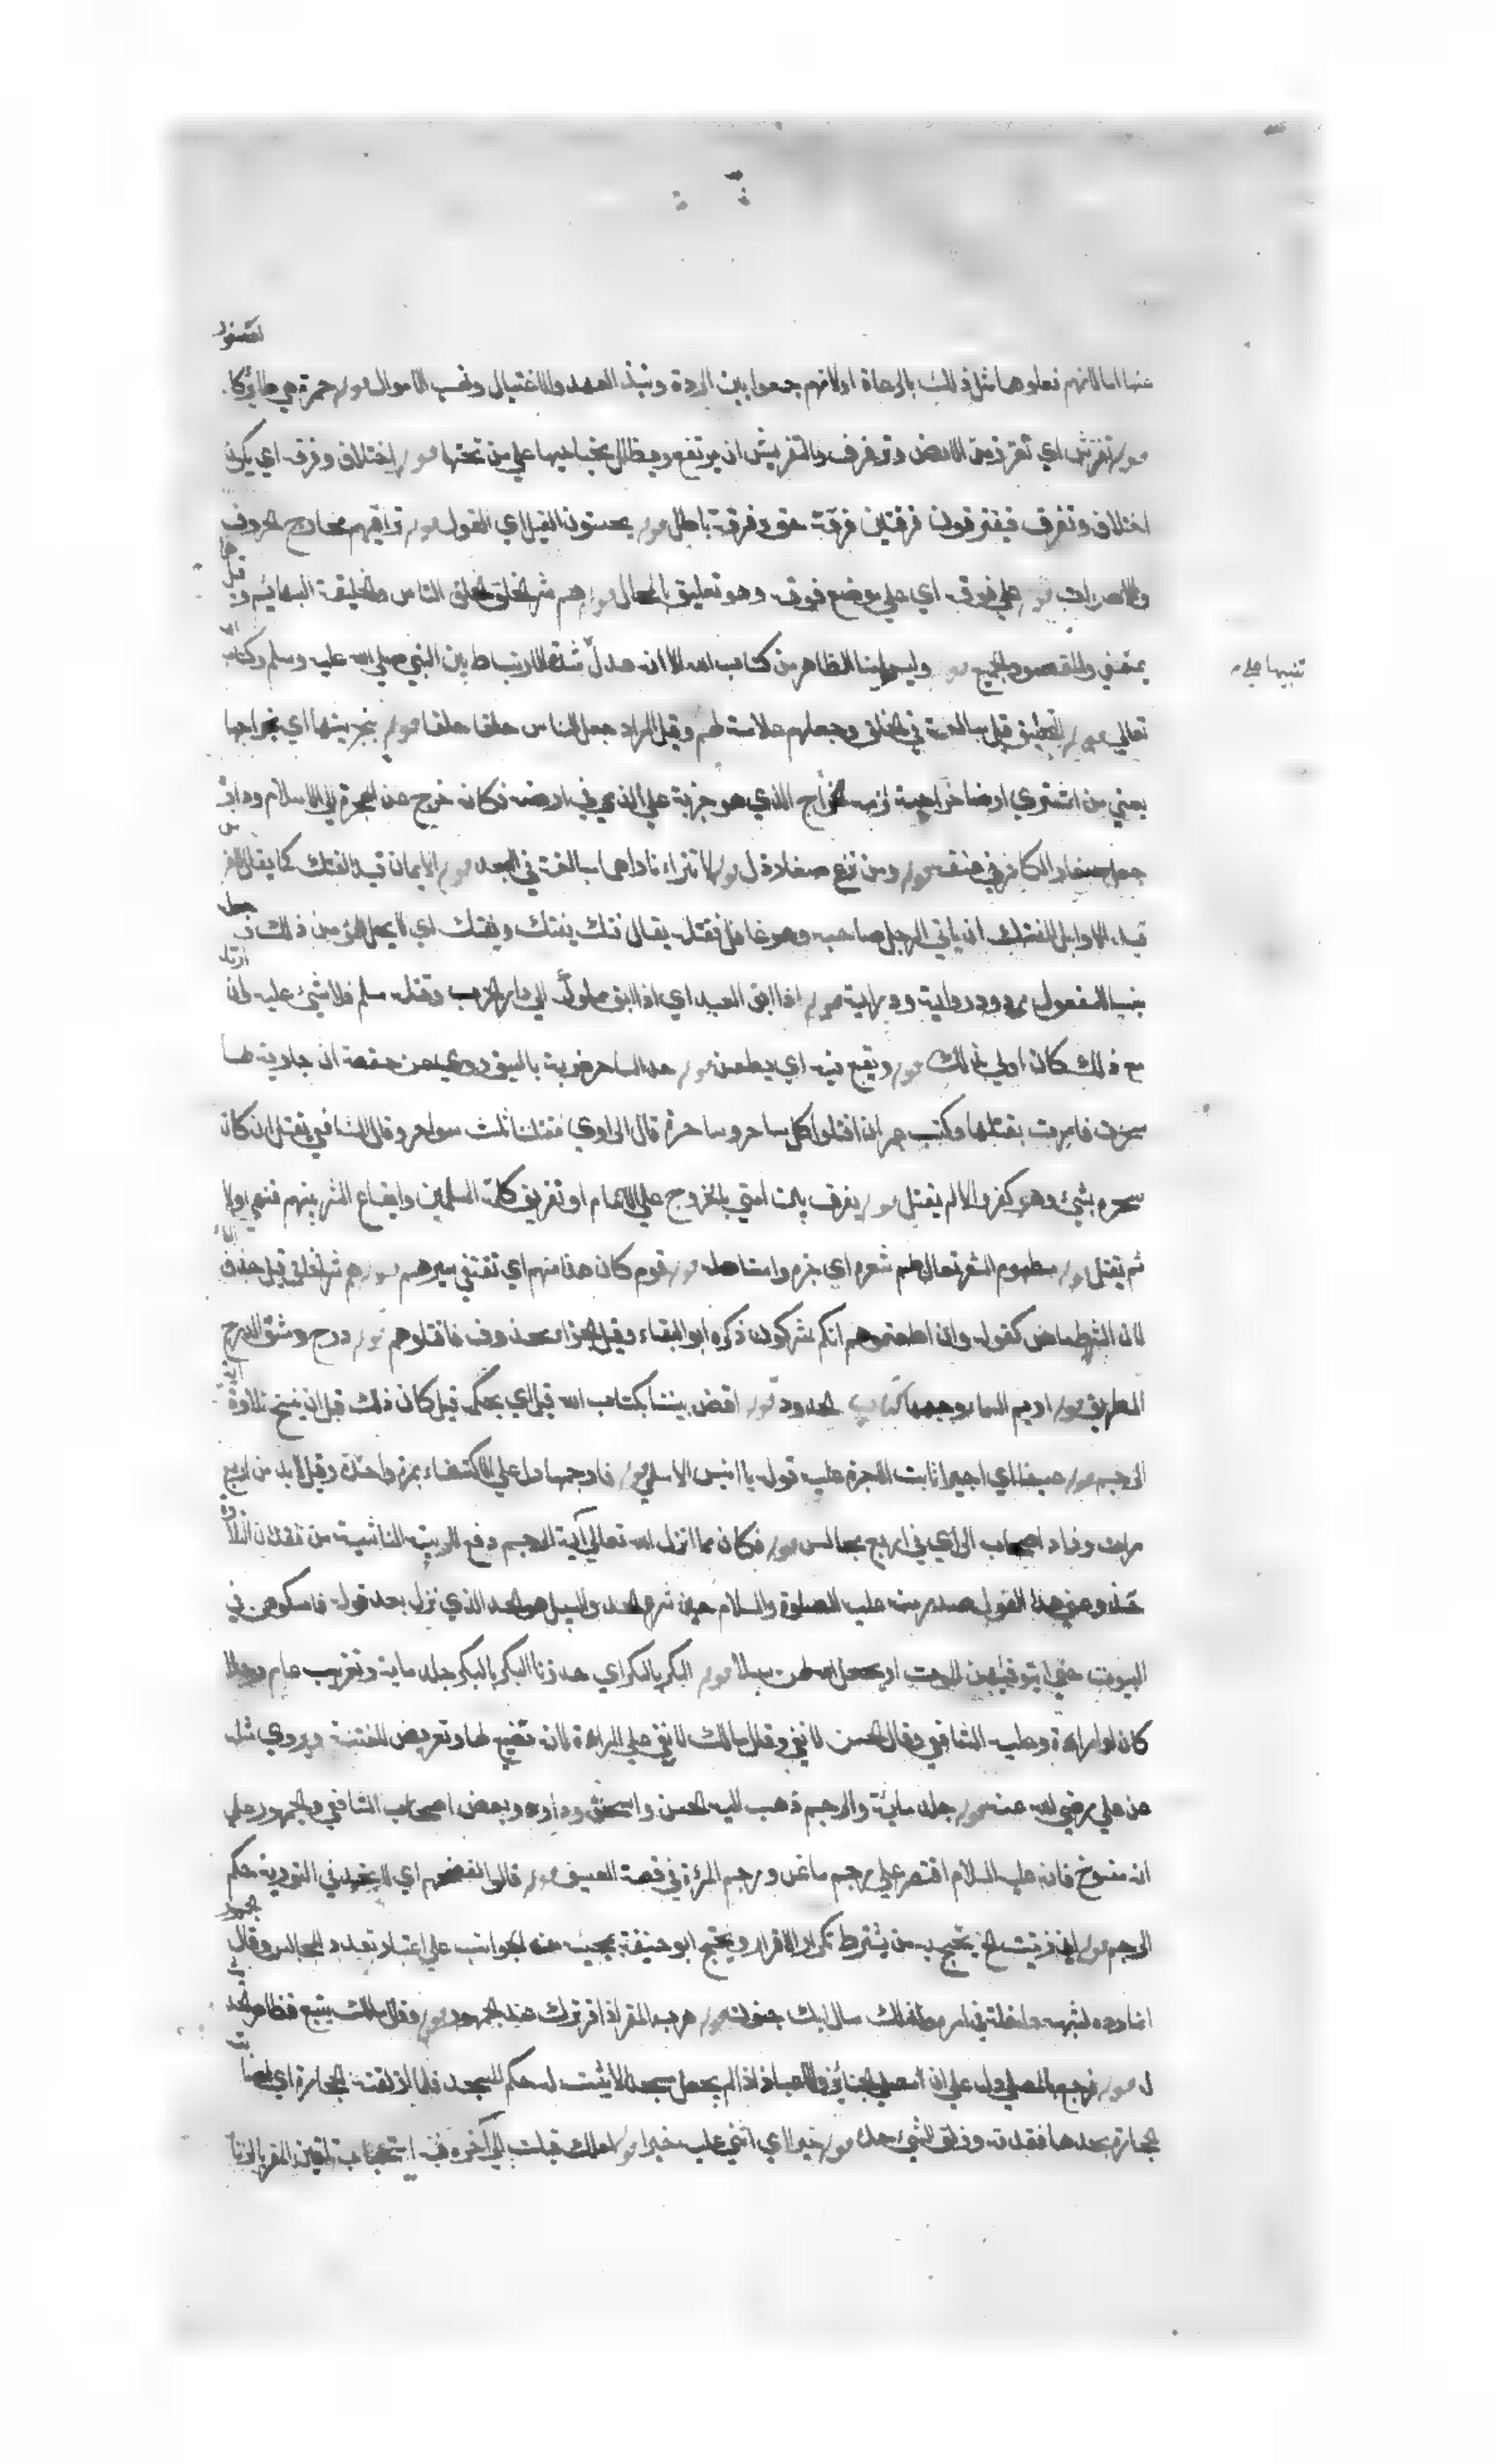 منها اما لانهم فعلوها مثل ذلك بالرعاة او لانهم جمعوا بين الردة ونبذ العهد والاغتيال ونهب الاموال قوله حمرة هي طائر كا
لعصفور
قوله تفرش اي تقرب من الارض وترفرف والتفريش ان يرتفع ويظلل بجناحيها علي من تحتها قوله اختلاف وفرقة اي يكون
اختلاف وتفرق فيفترقون فرقتين فرقة حق وفرقة باطل قوله يحسنون القيل اي القول قوله تراقيهم مخارج الحروف
والاصوات قوله علي فوقه اي علي موضع فوقه وهو تعليق بالمحال قوله هم شر الخلق الخلق الناس والخليقة البهائم وقيل هما
بمعني والمقصود الجميع قوله وليسوا منا الظاهر من كتاب الله الا انه عدل شدة الارتباط بين النبي صلي الله عليه وسلم وكتاب الله
تنبيها علي
تعالي قوله التحليق قيل مبالغة في الحلق وجعلهم علامة لهم وقيل المراد جعل الناس حلقا حلقا قوله بجزيتها اي بخراجها
يعني من اشتري ارضا خراجية لزمه الخراج الذي هو جزية علي الذمي في ارضه فكانه خرج عن الهجرة الي الاسلام وداره
جعل صغار الكافر في عنقه قوله ومن نزع صغار قوله لا تتراءا ناراهما مبالغة في البعد قوله الايمان قيد الفتك كما يقال الفرس
قيد الاوابد الفتك ان ياتي الرجل صاحبه وهو غافل فيقتل يقال فتك يفتك ويفتك اي لا يعمل المؤمن ذلك وجعل
بناء المفعول مردود رواية ودراية قوله اذا ابق العبد اي اذا ابق مملوك الي دار الحرب وقتله مسلم فلا شيء عليه وان ارتد
مع ذلك كان اولي بذلك قوله ويقع فيه اي يطعن قوله حد الساحر ضربة بالسيف روي عن حفصة ان جارية لها
سحرت فامرت بقتلها وكتب عمر ان اقتلوا كل ساحر وساحرة قال الراوي فقتلنا ثلث سواحر وقال الشافعي يقتل ان كان
سحره بشيء وهو كفر والا لم يقتل قوله يفرق بين امتي بالخروج علي الامام او تفريق كلمة المسلمين وايقاع الشر بينهم فنهي اولا
ثم يقتل قوله مطموم الشعر يقال طم شعره اي جزه واستاصله قوله قوم كان هذا منهم اي تقتفي سيرهم قوله هم شر الخلق قيل حذف الفاء
لان الشرط ماض كقوله وان اطعتموهم انكم لمشركون ذكره ابو البقاء وقيل الجزاء محذوف فاقتلوهم قوله درج دمشق الدرج
الطريق قوله اديم السماء وجهها كتاب الحدود قوله اقض بيننا بكتاب الله قيل اي بحكمه قيل كان ذلك قبل ان ينسخ تلاوة آية
الرجم قوله عسيفا اي اجيرا ثابت الاجرة عليه قوله يا انيس الاسلمي قوله فارجمها دل علي الاكتفاء بمرة واحدة وقيل لابد من اربع
مرات وزاد اصحاب الراي في اربع مجالس قوله فكان مما انزل الله تعالي آية الرجم دفع للريبة الناشية من فقدان التلاوة
خذوا عني هذا القول صدر منه عليه الصلوة والسلام حين شرع الحد والسبيل هو الحد الذي نزل بعد قوله فامسكوهن في
البيوت حتي يتوفيهن الموت او يجعل الله لهن سبيلا قوله البكر بالبكر اي حد زنا البكر بالبكر جلد ماية وتغريب عام رجلا
كان او امراءة وعليه الشافعي وقال الحسن لا نفي وقال مالك لا نفي علي المراءة لانه تضييع لها وتعريض للفتنة ويروي مثله
عن علي رضي الله عنه قوله جلد مائة والرجم ذهب اليه الحسن واسحق وداود وبعض اصحاب الشافعي والجمهور علي
انه منسوخ فانه عليه السلام اقتصر علي رجم ماعز ورجم المرءة في قصة العسيف قوله قالوا نفضحهم اي لا نجد في التورية حكم
الرجم قوله اني زنيت الخ يحتج به من يشترط تكرار الاقرار ويحتج ابو حنيفة بمجيئه من الجوانب علي اعتبار تعدد المجالس وقال الجمهور
انما رده لشبهة داخلة في امره ولذلك سال ابك جنون قوله هرب المقر اذا فر ترك عند الجمهور قوله وقال مالك يتبع فظاهر الحد
قوله فرجم بالمصلي دل علي ان مصلي الجنائز والاعياد اذا لم يجعل مسجدا لا يثبت له حكم المسجد فلما اذلقته الحجارة اي اصابته
الحجارة بحدها فقلقت وذلق الشيء حده قوله خيرا اي اثني عليه خيرا قوله لعلك قبلت الي آخره فيه استحباب تلقين المقر بالزنا